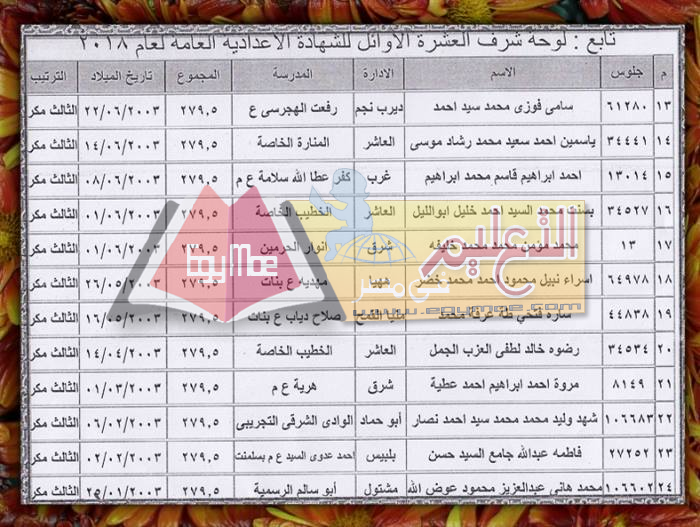 تابع : لوحة شرف العشرة الاوائل للشهادة الاعدادية العامة لعام ٢٠١٨
م جلوس الاسم الادارة المدرسة المجموع تاريخ الميلاد الترتيب
١٣ ٦١٢٨٠ سامى فوزى محمد سيد احمد ديرب نجم رفعت الهجرسى ع ٢٧٩,٥ ٢٢/٠٦/٢٠٠٣ الثالث مكر
١٤ ٣٤٤٤١ ياسمين احمد سعيد محمد رشاد موسى العاشر المنارة الخاصة ٢٧٩,٥ ١٤/٠٦/٢٠٠٣ الثالث مكر
١٥ ١٣٠١٤ احمد ابراهيم قاسم محمد ابراهيم غرب كفر عطا الله سلامة ع م ٢٧٩,٥ ٠٨/٠٦/٢٠٠٣ الثالث مكر
١٦ ٣٤٥٢٧ بسنت محمد السيد احمد خليل ابوالليل العاشر الخطيب الخاصة ٢٧٩,٥ ٠١/٠٦/٢٠٠٣ الثالث مكر
١٧ ١٣ محمد مؤمن محمد محمد خليفه شرق انوار الحرمين ٢٧٩,٥ ٠١/٠٦/٢٠٠٣ الثالث مكر
١٨ ٦٤٩٧٨ اسراء نبيل محمود احمد محمد خضر ههيا مهديه ع بنات ٢٧٩,٥ ٢٦/٠٥/٢٠٠٣ الثالث مكر
١٩ ٤٤٨٣٨ ساره فتحي طه عرفه محمد منيا القمح صلاح دياب ع بنات ٢٧٩,٥ ١٦/٠٥/٢٠٠٣ الثالث مكر
٢٠ ٣٤٥٣٤ رضوه خالد لطفى العزب الجمل العاشر الخطيب الخاصة ٢٧٩,٥ ١٤/٠٤/٢٠٠٣ الثالث مكر
٢١ ٨١٤٩ مروة احمد ابراهيم احمد عطية شرق هرية ع م ٢٧٩,٥ ٠١/٠٣/٢٠٠٣ الثالث مكر
٢٢ ١٠٦٦٨٣ شهد وليد محمد محمد سيد احمد نصار أبو حماد الوادى الشرقى التجريبى ٢٧٩,٥ ٠٦/٠٢/٢٠٠٣ الثالث مكر
٢٣ ٢٧٢٥٢ فاطمه عبدالله جامع السيد حسن بلبيس احمد عدوى السيد ع م بسلمنت ٢٧٩,٥ ٠٢/٠٢/٢٠٠٣ الثالث مكر
٢٤ ١٠٦٦٠٢ محمد هاني عبدالعزيز محمود عوض الله مشتول أبو سالم الرسمية ٢٧٩,٥ ٠١/٢٠٠٣ الثالث مكر
التعليم
في مصر
www.edumse.com